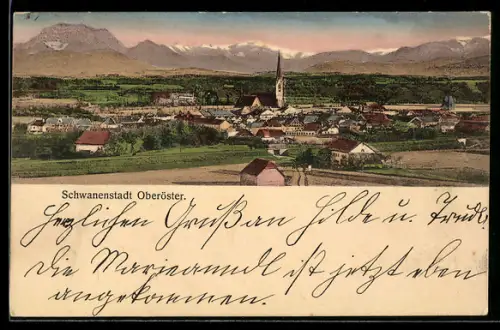 Schwanenstadt Oberöster.
Herzlichen Gruß an Hilde u. Trudl.
Die Marieanndl ist jetzt eben
angekommen.